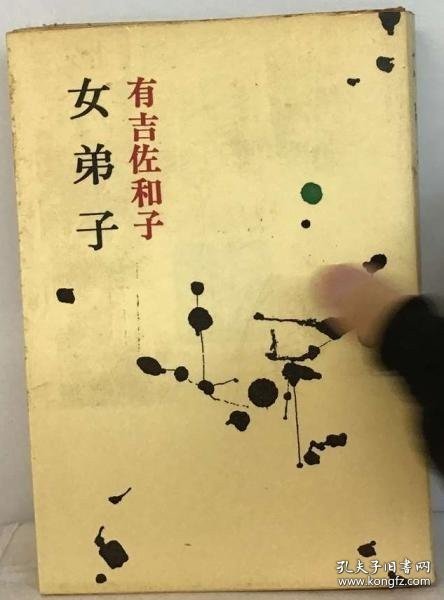 有吉佐和子
女弟子
孔夫子旧书网
www.kongfz.com